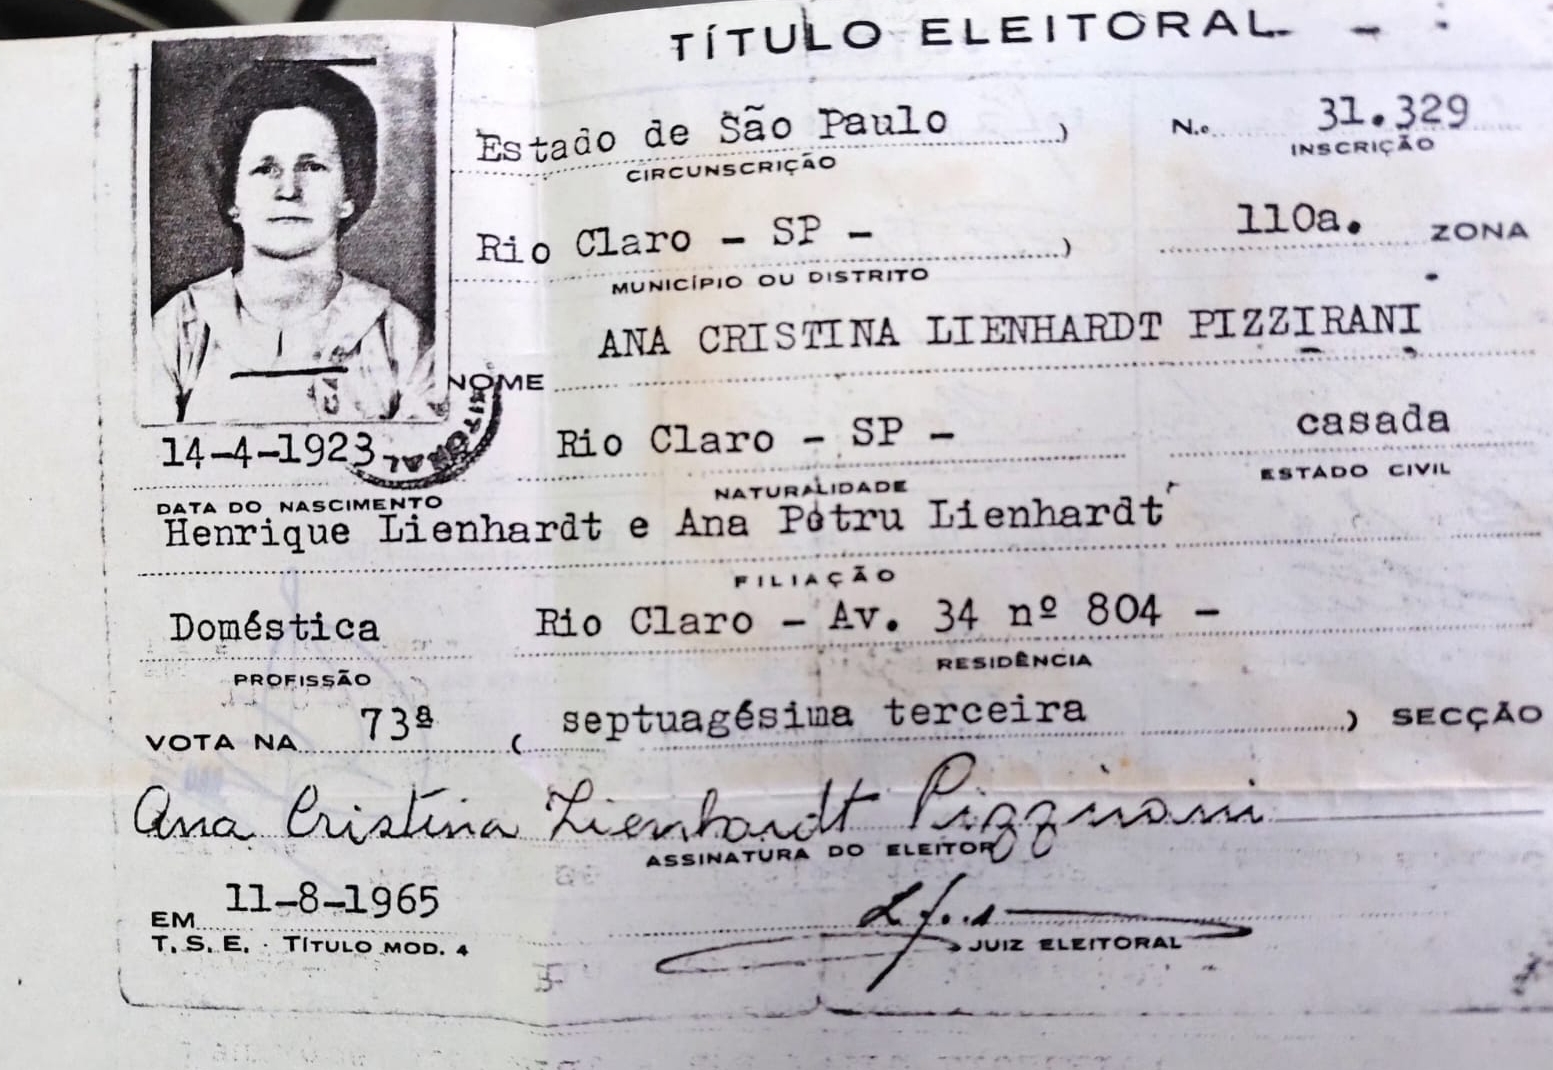 TÍTULO ELEITORAL
Estado de São Paulo ) N.o 31.329
CIRCUNSCRIÇÃO INSCRIÇÃO
Rio Claro - SP - ) 110a. ZONA
MUNICÍPIO OU DISTRITO
NOME ANA CRISTINA LIENHARDT PIZZIRANI
14-4-1923 Rio Claro - SP - casada
DATA DO NASCIMENTO NATURALIDADE ESTADO CIVIL
Henrique Lienhardt e Ana Petru Lienhardt
FILIAÇÃO
Doméstica Rio Claro - Av. 34 nº 804 -
PROFISSÃO RESIDÊNCIA
VOTA NA 73ª ( septuagésima terceira ) SECÇÃO
Ana Cristina Lienhardt Pizzirani
ASSINATURA DO ELEITOR
EM 11-8-1965
T. S. E. · TÍTULO MOD. 4 JUIZ ELEITORAL